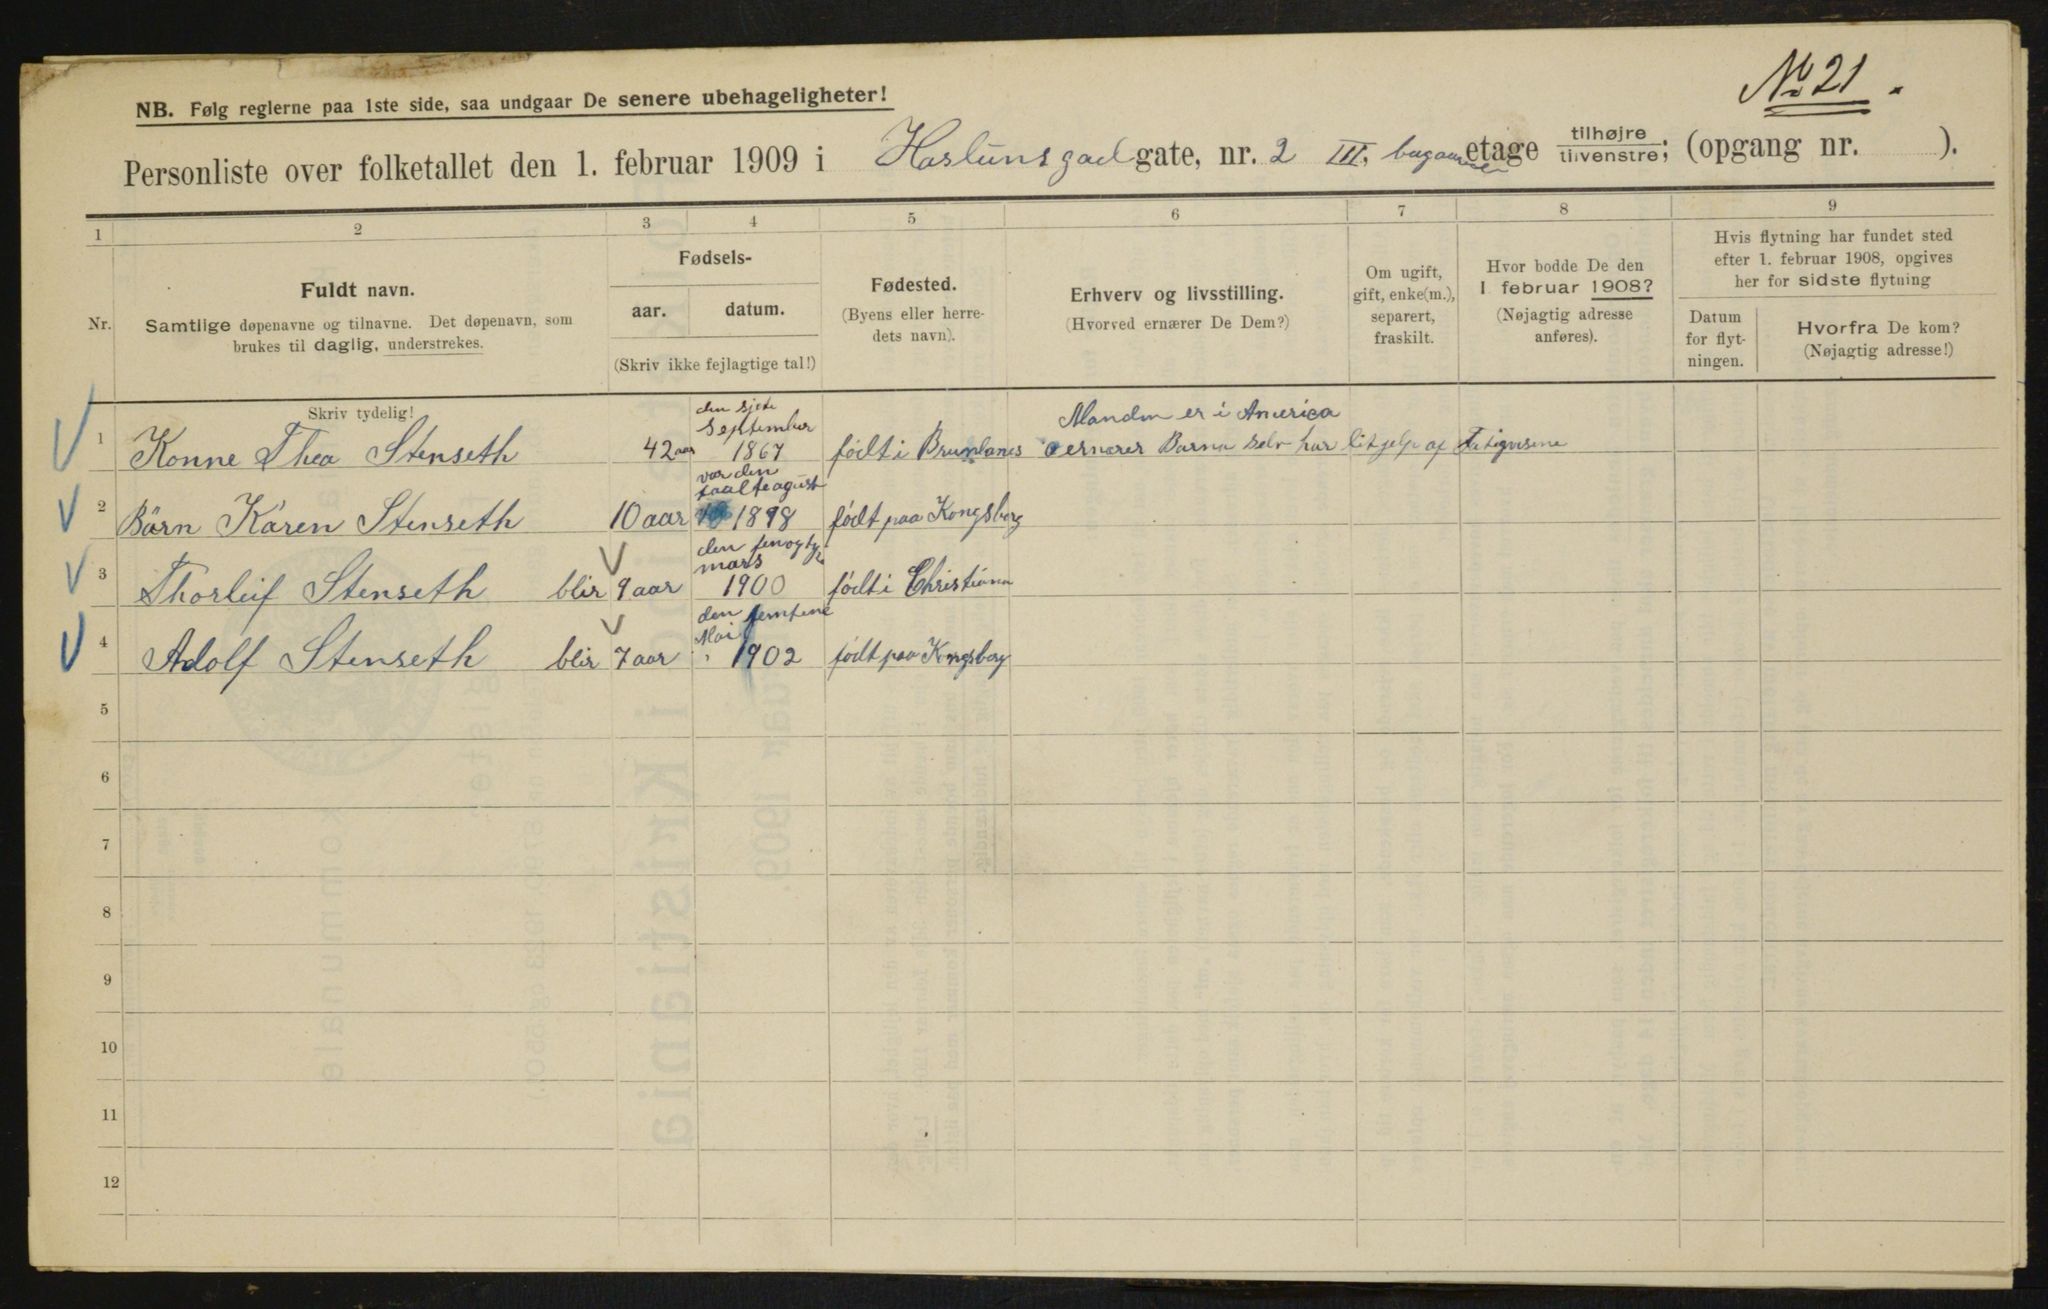 No 21.
NB. Følg reglerne paa 1ste side, saa undgaar De senere ubehageligheter!
Personliste over folketallet den 1. februar 1909 i Haslunsgad gate, nr. 2 III, etage tilhøjre/tilvenstre; (opgang nr. ).
1 2 3 4 5 6 7 8 9
Nr.
Fuldt navn.
Samtlige døpenavne og tilnavne. Det døpenavn, som
brukes til daglig, understrekes.
Fødsels-
aar. datum.
(Skriv ikke fejlagtige tal!)
Fødested.
(Byens eller herre-
dets navn).
Erhverv og livsstilling.
(Hvorved ernærer De Dem?)
Om ugift,
gift, enke(m.),
separert,
fraskilt.
Hvor bodde De den
1 februar 1908?
(Nøjagtig adresse
anføres).
Hvis flytning har fundet sted
efter 1. februar 1908, opgives
her for sidste flytning
Datum
for flyt-
ningen.
Hvorfra De kom?
(Nøjagtig adresse!)
Skriv tydelig!
den sjete
September
Manden er i America
1 Konne Thea Stenseth 42 aar 1867 født i Brunlanes ernærer Barna selv har lit jelp af
var den
taalte agust
2 Börn Karen Stenseth 10 aar 1898 født paa Kongsberg
den
mars
3 Thorleif Stenseth blir 9 aar 1900 født i Christiana
den femtene
Mai
4 Adolf Stenseth blir 7 aar 1902 født paa Kongsberg
5
6
7
8
9
10
11
12